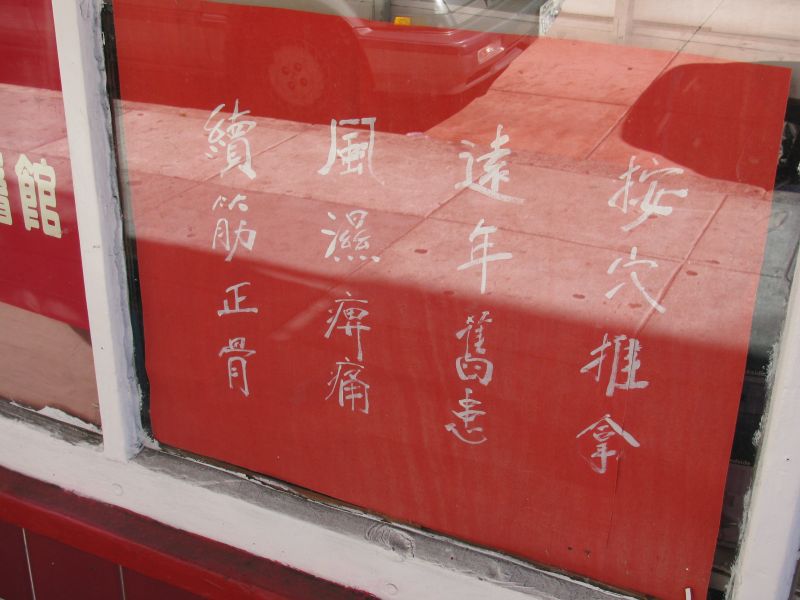 按穴推拿
遠年舊患
風濕痹痛
續筋正骨
館